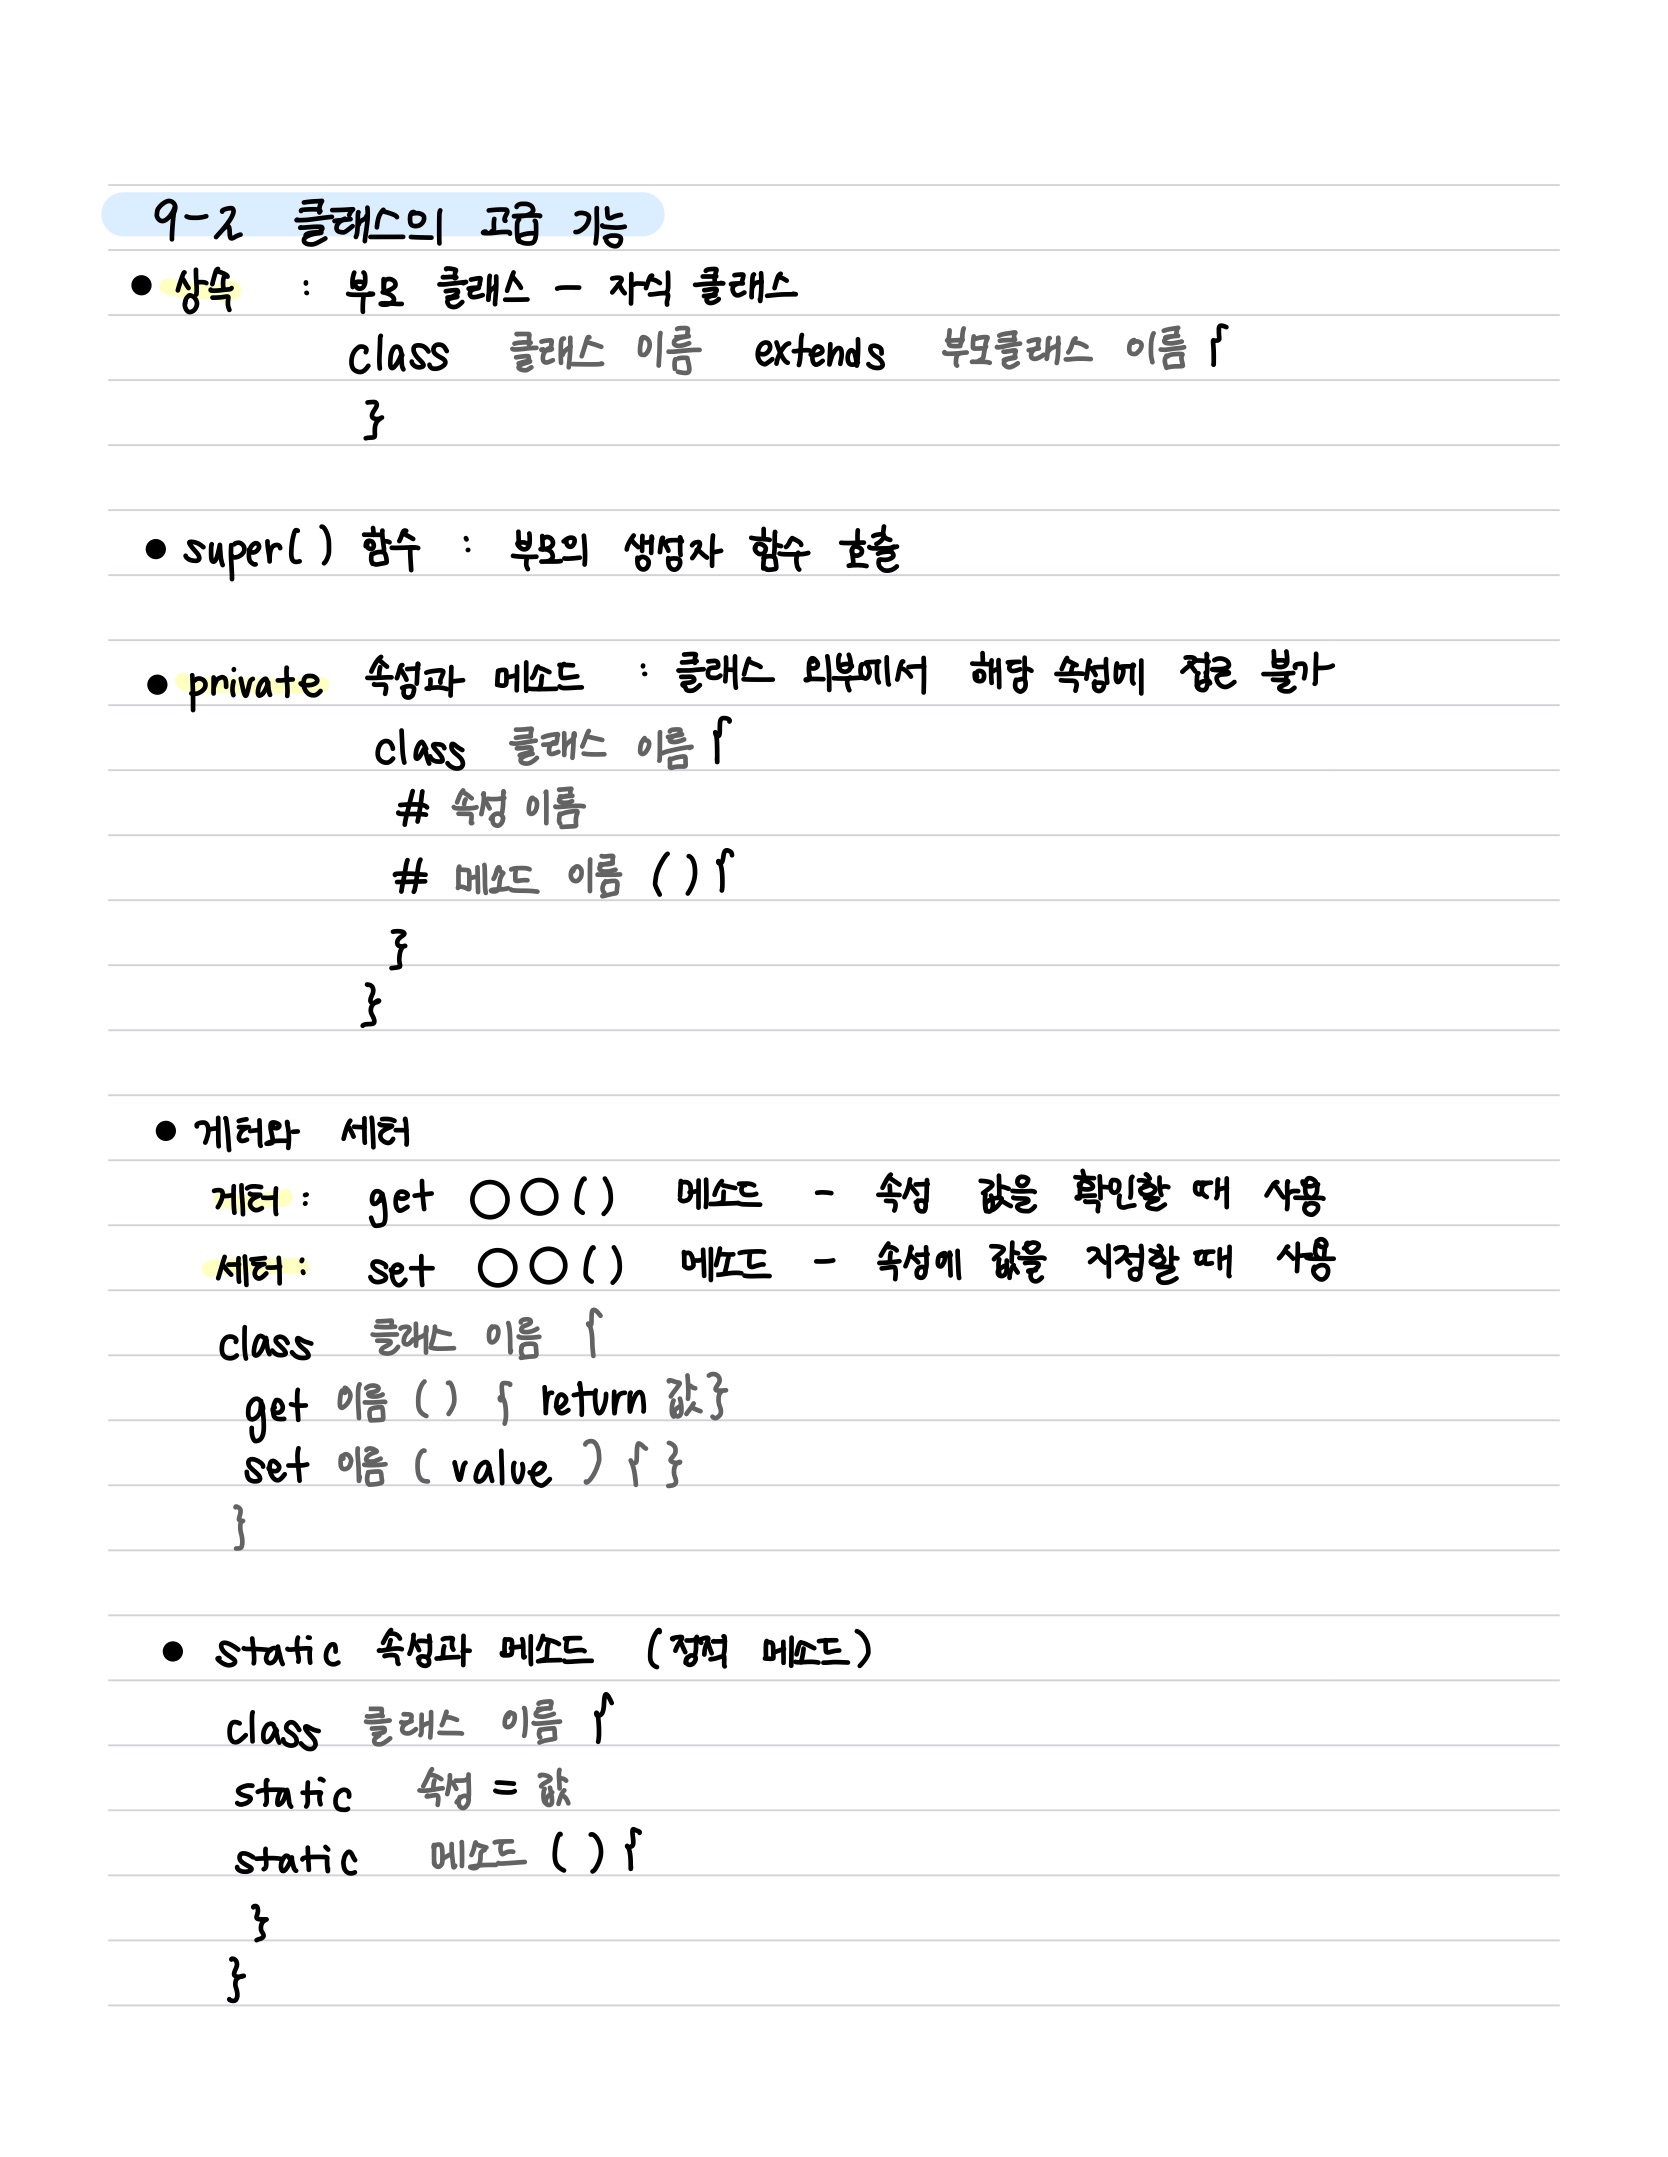 9-2 클래스의 고급 기능
● 상속 : 부모 클래스 - 자식 클래스
class 클래스 이름 extends 부모클래스 이름 {
}
● super( ) 함수 : 부모의 생성자 함수 호출
● private 속성과 메소드 : 클래스 외부에서 해당 속성에 접근 불가
class 클래스 이름 {
# 속성 이름
# 메소드 이름 ( ) {
}
}
● 게터와 세터
게터 : get ○○( ) 메소드 - 속성 값을 확인할 때 사용
세터 : set ○○( ) 메소드 - 속성에 값을 지정할 때 사용
class 클래스 이름 {
get 이름 ( ) { return 값 }
set 이름 ( value ) { }
}
● static 속성과 메소드 (정적 메소드)
class 클래스 이름 {
static 속성 = 값
static 메소드 ( ) {
}
}